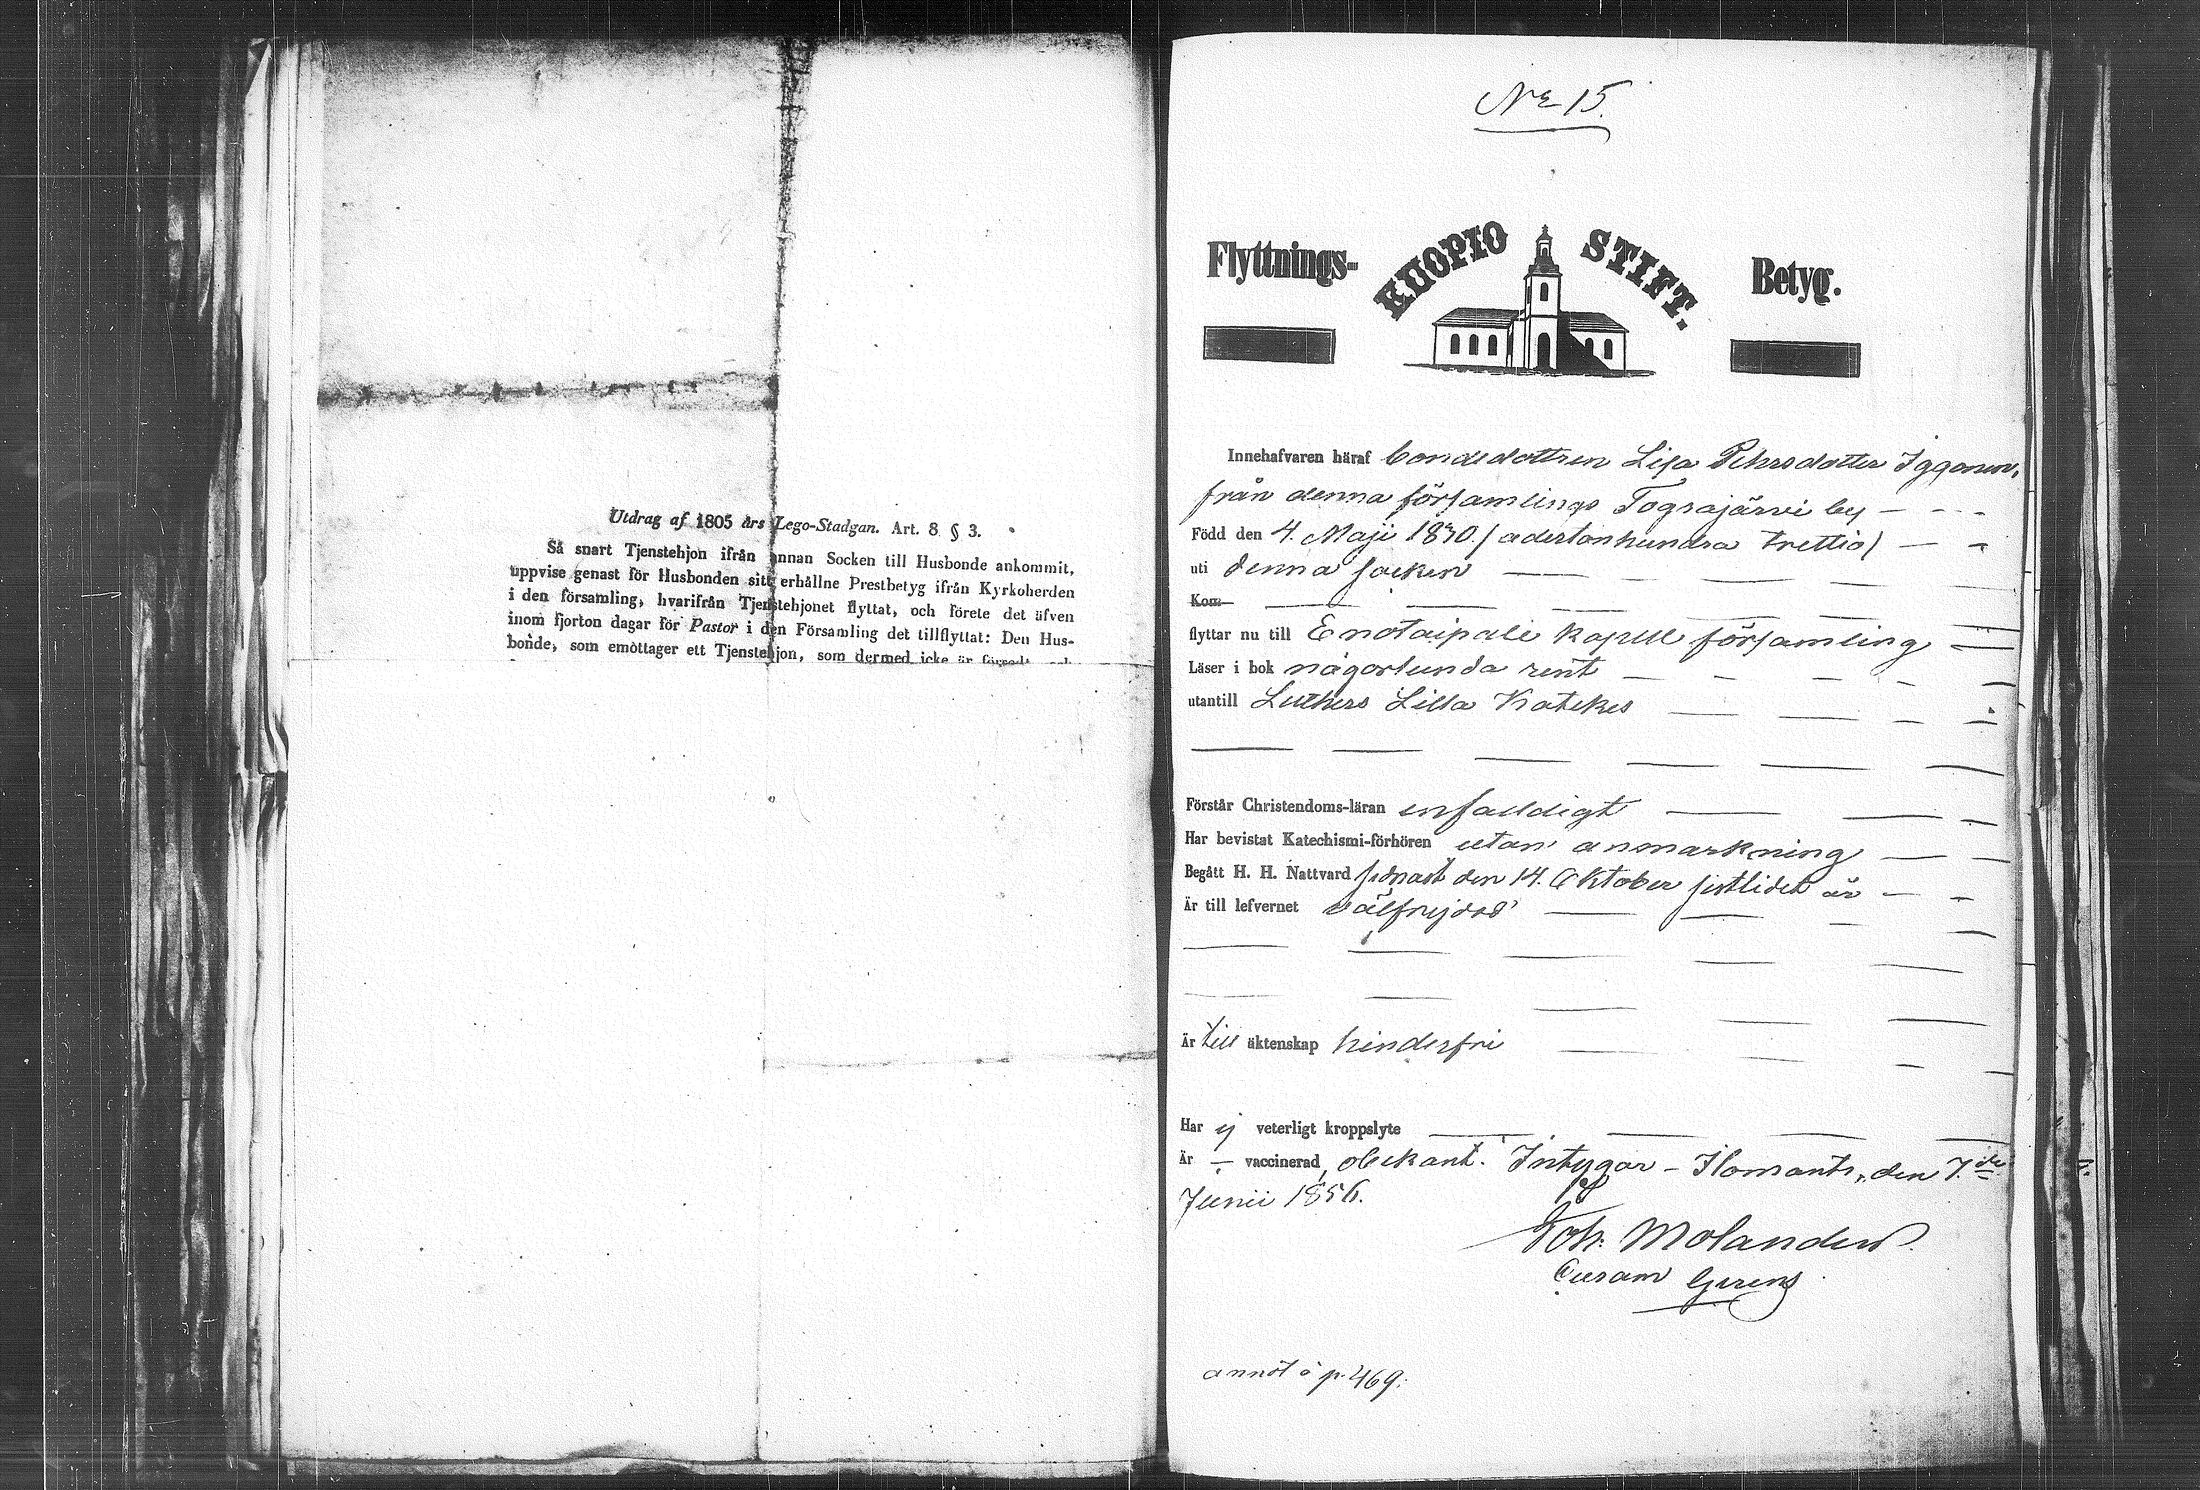 Utdrag af 1805 års Lego-Stadgan. Art. 8 § 3.
Så snart Tjenstehjon ifrån annan Socken till Husbonde ankommit,
uppvise genast för Husbonden sitt erhållne Prestbetyg ifrån Kyrkoherden
i den församling, hvarifrån Tjenstehjonet flyttat, och förete det äfven
inom fjorton dagar för Pastor i den Församling det tillflyttat: Den Hus-
bonde, som emottager ett Tjenstehjon, som dermed icke är försedt
No 15.
Flyttnings- KUOPIO STIFT. Betyg.
Innehafvaren häraf bondedottren Lisa Pehrsdotter Iggonen,
från denna församlings Tograjärvi by
Född den 4. Maji 1830. / adertonhundra trettio /
uti denna socken
Kom
flyttar nu till Enotaipale kapell församling
Läser i bok någorlunda rent
utantill Luthers Lilla Katekes
Förstår Christendoms-läran enfaldigt
Har bevistat Katechismi-förhören utan anmärkning
Begått H. H. Nattvard sednast den 14. Oktober sistlidet år
Är till lefvernet välfrejdad
Är till äktenskap hinderfri
Har ej veterligt kroppslyte
Är — vaccinerad, obekant. Intygar - Ilomants, den 7.de
Junii 1856.
Joh: Molander.
Curam Gerens
annot å p. 469.